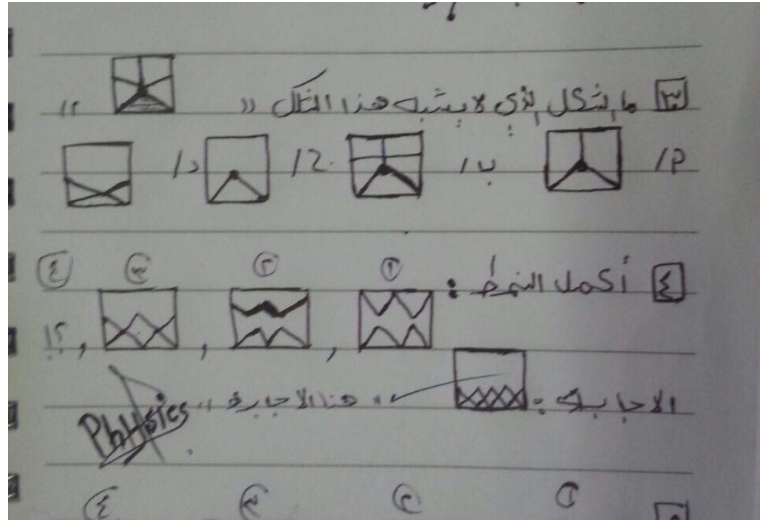 ٣ ما الشكل الذي لا يشبه هذا الشكل " "
أ/ ب/ ج/ د/
٤ أكمل النمط :
① ② ③ ④
، ، ، ؟!
الاجابة : هذا الاجابة "
Physics
① ② ③ ④